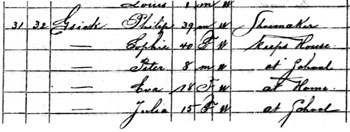 Louis 1 m W
31 32 Gsick Philip 39 m W Shumaker
— Sophie 40 F W Keeps House
— Peter 8 m W at School
— Eva 18 F W at Home
— Julia 15 F W at School